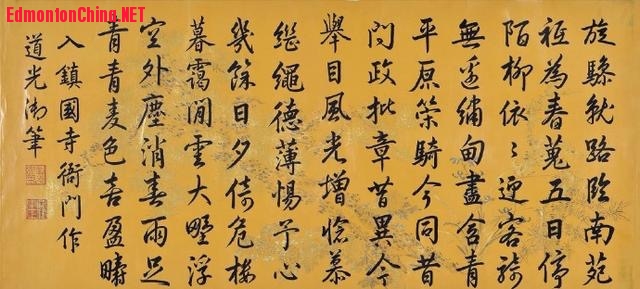 EdmontonChina.NET
旋驂就路臨南苑
祇為春蒐五日停
陌柳依〻迎客旆
無邊繡甸盡含青
平原策騎今同昔
問政批章昔異今
舉目風光增愴慕
继繩德薄惕予心
幾餘日夕倚危樓
暮靄閒雲大野浮
空外塵消春雨足
青青麦色喜盈疇
入鎮國寺衙門作
道光御筆